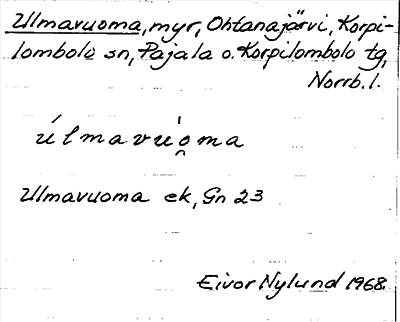 Ulmavuoma, myr, Ohtanajärvi, Korpi-
lombolo sn, Pajala o. Korpilombolo tg,
Norrb. l.
úlmavu̍o̯ma
Ulmavuoma ek, Gn 23
Eivor Nylund 1968.